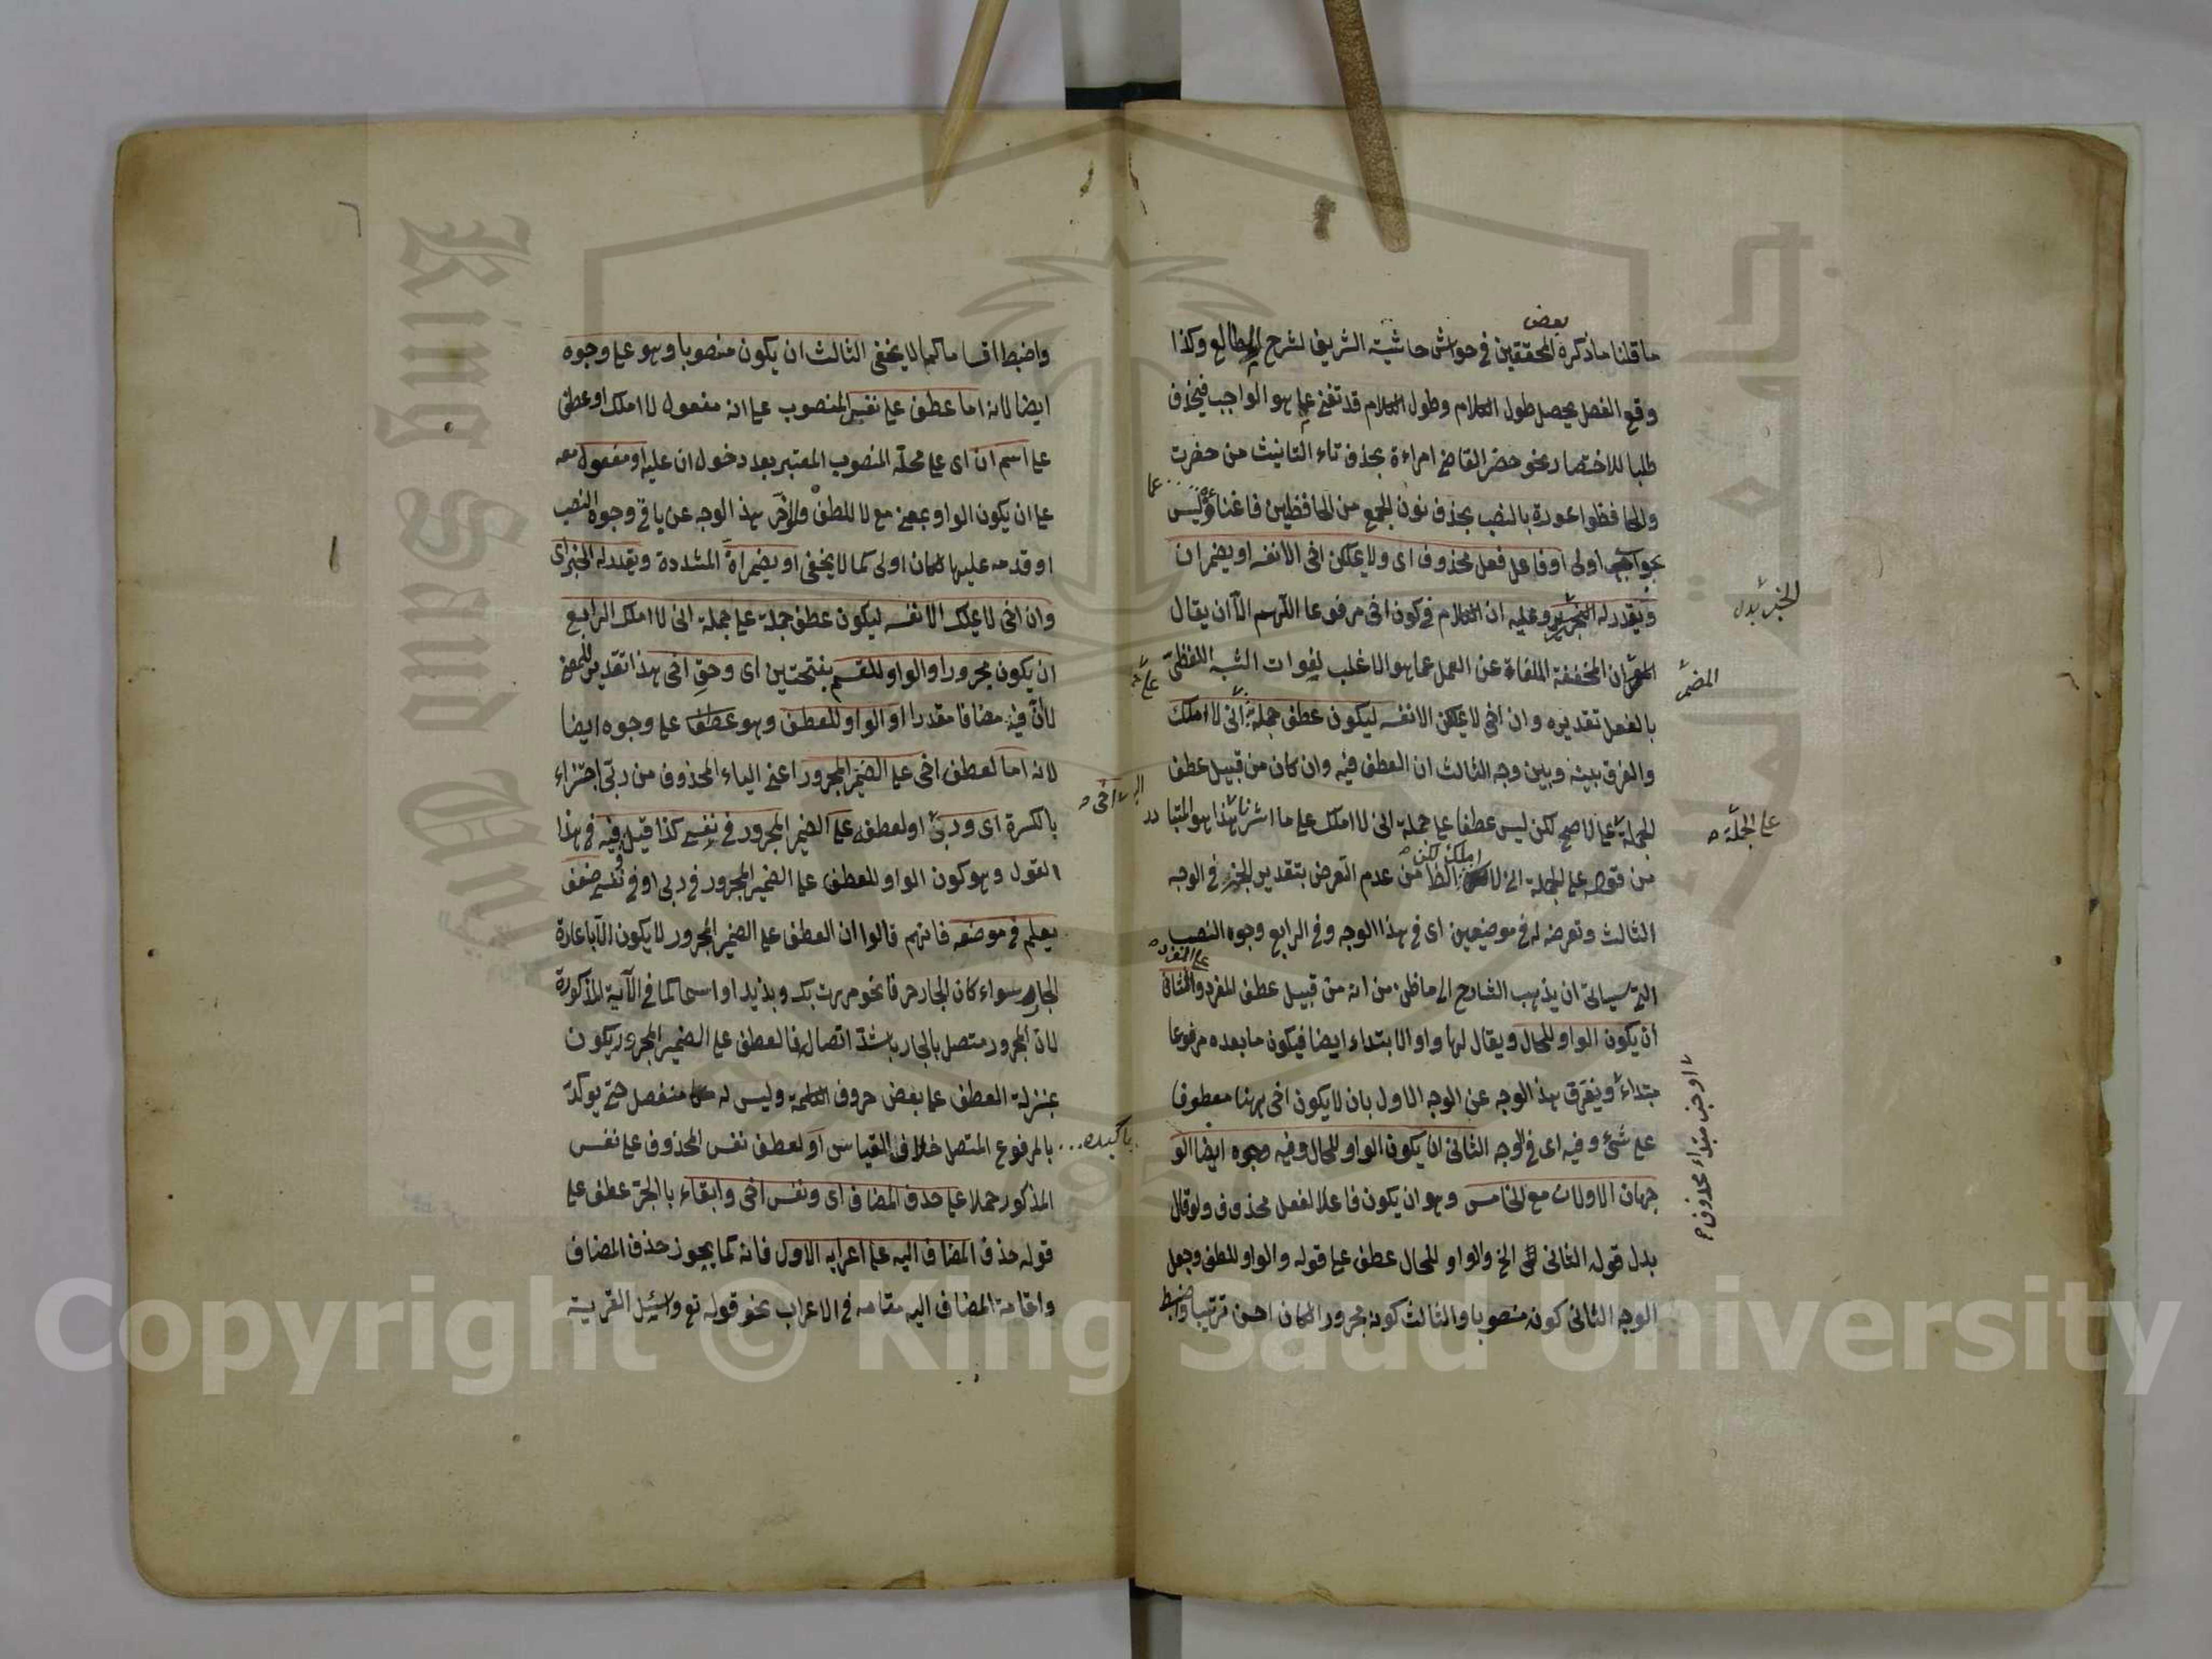 بعض
ما قلنا ما ذكره المحققين في حواش حاشية الشريف لشرح المطالع وكذا
وقع الفصل يحصل طول الكلام وطول الكلام قد تغني عما هو الواجب فيحذف
طلبا للاختصار نحو حضر القاضي امراءة بحذف تاء التانيث من حضرت
والحافظوا عورة بالنصب بحذف نون الجمع من الحافظين فاغناؤه ليس
اولى او فاعل فعل محذوف اى ولا يملك اخى الا نفسه او يضمر ان
ويقدر له الخبر وعليه ان الكلام في كون اخى مرفوعا اللهم الا ان يقال
ان المخففة الملغاة عن العمل عما هو الاغلب لفوات الشبه اللفظي
بالفعل تقديره وان اخى لا يملك الا نفسه ليكون عطف جملة انى لا املك
والفرق بينه وبين وجه الثالث ان العطف فيه وان كان من قبيل عطف
الجملة على الاصح لكن ليس عطفا على جملة انى لا املك على ما اشرنا هذا هو المتبادر
من قوله على الجملة انى لا املك لكن الظ من عدم التعرض بتقدير الخبر في الوجه
الثالث وتعرضه له في موضعين اى في هذا الوجه وفي الرابع وجوه النصب
التي سياتى ان يذهب الشارح الى ما ظن من انه من قبيل عطف المفرد والثانى
على المفرد
ان يكون الواو للحال ويقال لها واو الابتداء ايضا فيكون ما بعده مرفوعا
مبتداء ويفرق هذا الوجه عن الوجه الاول بان لا يكون اخى ههنا معطوفا
على شئ وفيه اى في الوجه الثانى ان يكون الواو للحال وفيه وجوه ايضا الو
جهان الاولان مع الخامس وهو ان يكون فاعلا لفعل محذوف ولو قال
بدل قوله الثانى الخ والواو للحال عطف على قوله والواو للعطف وجعل
الوجه الثانى كونه منصوبا والثالث كونه مجرورا لكان احسن ترتيبا واضبط
الخبر بدل
المضمر
على الجملة
او خبر مبتداء محذوف
٦
واضبط اقساما كما لا يخفى الثالث ان يكون منصوبا وهو على وجوه
ايضا لانه اما عطف على نفسي المنصوب على انه مفعول لا املك او عطف
على اسم ان اى على محله المنصوب المعتبر بعد دخول ان عليه او مفعول معه
على ان يكون الواو بمعنى مع لا للعطف ولو اخر هذا الوجه عن باقي وجوه النصب
او قدمه عليها لكان اولى كما لا يخفى او يضمر ان المشددة ويقدر له الخبر اى
وان اخى لا يملك الا نفسه ليكون عطف جملة على جملة انى لا املك الرابع
ان يكون مجرورا والواو للقسم بفتحتين اى وحق اخى هذا تقدير للمعنى
لان فيه مضافا مقدرا او الواو للعطف وهو عطف على وجوه ايضا
لانه اما لعطف اخى على الضمير المجرور اعنى الياء المحذوف من ربى اجتزاء
بالكسرة اى وربى او لعطفه على الضمير المجرور في نفسي كذا قيل وفيه في هذا
القول وهو كون الواو للعطف على الضمير المجرور في ربى او في نفسي ضعف
يعلم في موضعه فانهم قالوا ان العطف على الضمير المجرور لا يكون الا باعادة
الجار سواء كان الجار حرفا نحو مررت بك وبزيد او اسما كما في الآية المذكورة
لان المجرور متصل بالجار باشد اتصال فالعطف على الضمير المجرور يكون
بمنزلة العطف على بعض حروف الكلمة وليس له منفصل حتى يوكد
بالمرفوع المتصل خلاف القياس او لعطف نفس المحذوف على نفس
المذكور حملا على حذف المضاف اى ونفس اخى وابقاء بالجر عطف على
قوله حذف المضاف اليه على اعرابه الاول فانه كما يجوز حذف المضاف
واقامة المضاف اليه مقامه في الاعراب نحو قوله تع واسئل القرية